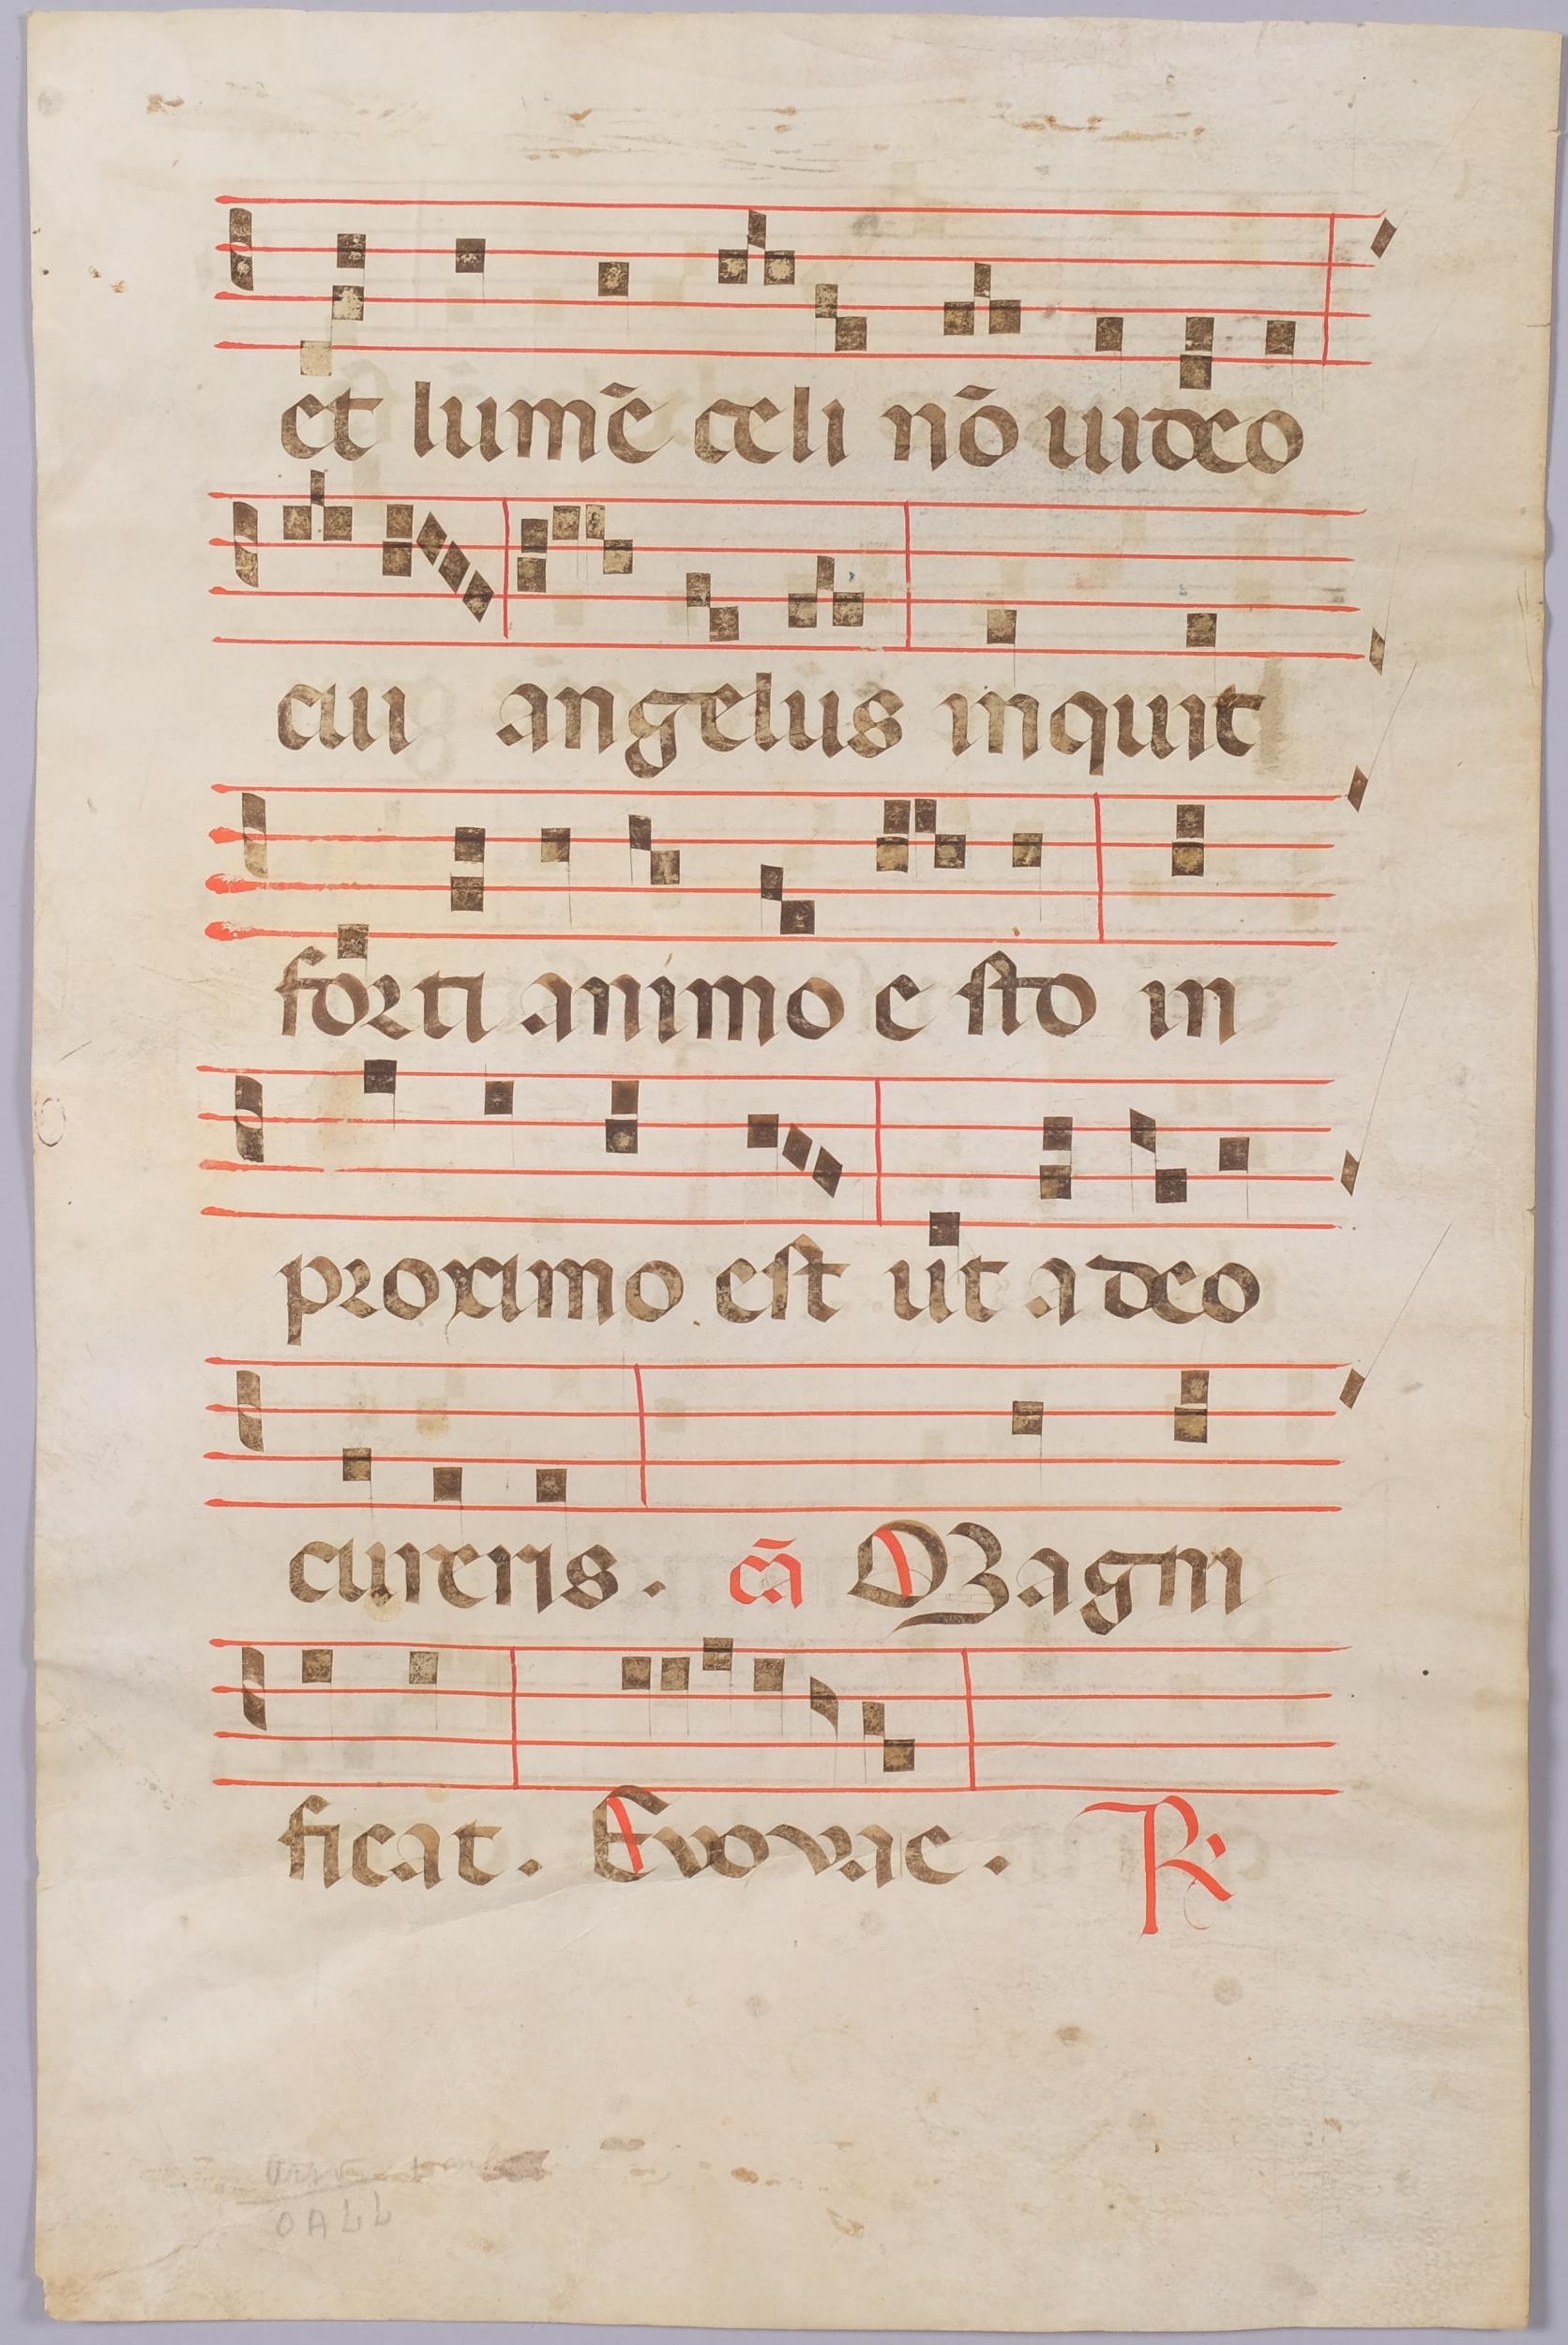 et lumē celi nō uideo
cui angelus inquit
forti animo e sto in
proximo est ut a deo
cureris. cā Magni
ficat. Evovae. R
OALL